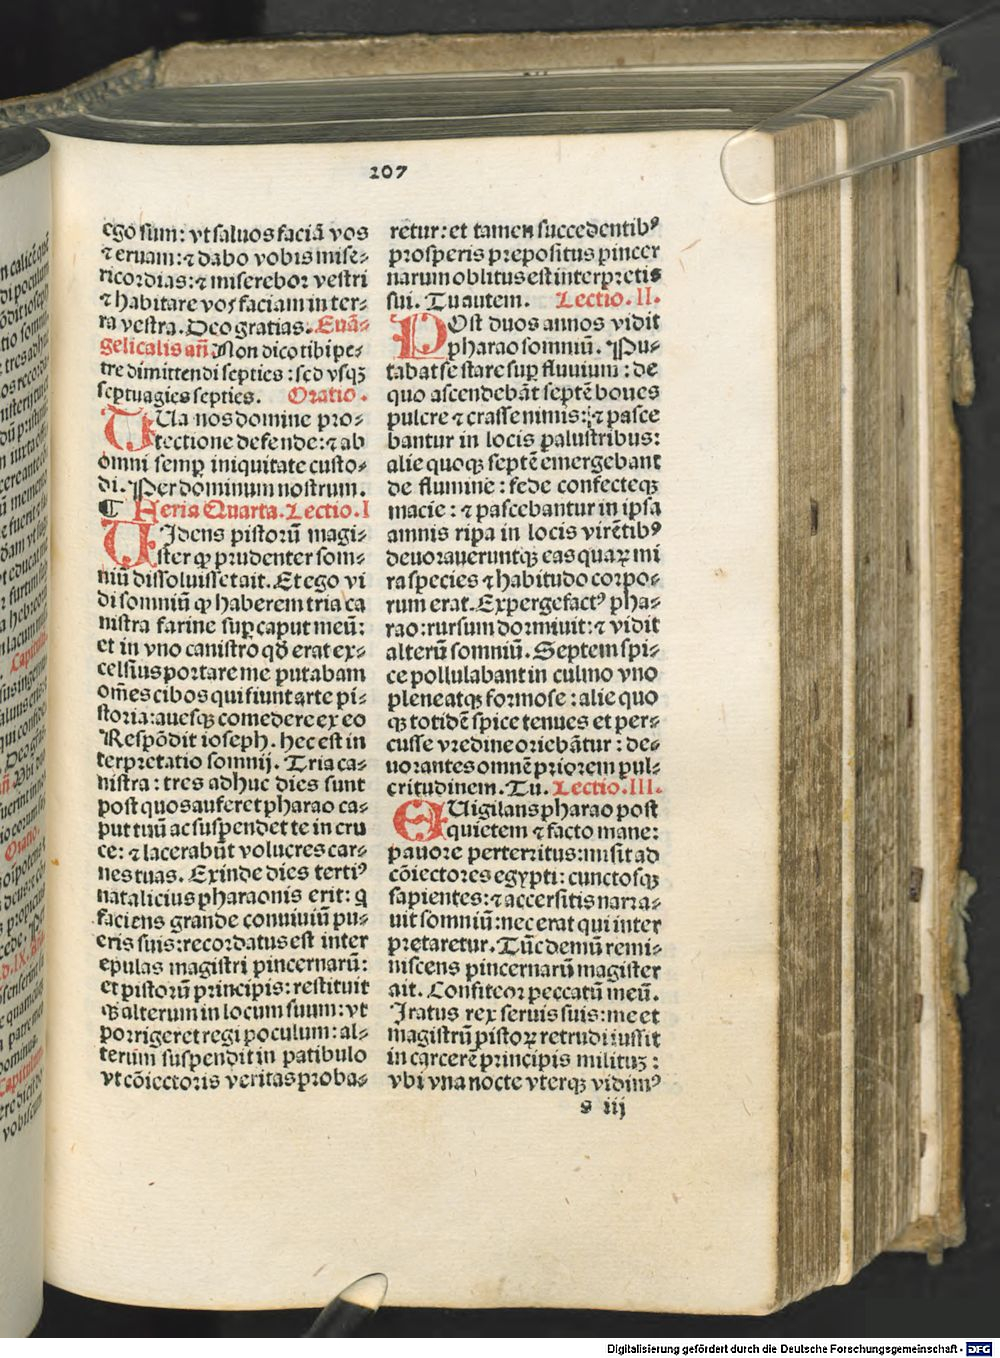 207
ego sum: vt saluos faciā vos
⁊ eruam: ⁊ dabo vobis mise⸗
ricordias: ⁊ miserebor vestri
⁊ habitare vos faciam in ter⸗
ra vestra. Deo gratias. Euā⸗
gelicalis añ Non dico tibi pe⸗
tre dimittendi septies: sed vsqꝫ
septuagies septies. Oratio.
TUa nos domine pro⸗
tectione defende: ⁊ ab
omni semꝑ iniquitate custo⸗
di. Per dominum nostrum.
¶ Feria Quarta. Lectio. I
UIdens pistorū magi⸗
ster ꝙ prudenter som⸗
niū dissoluisset ait. Et ego vi
di somniū ꝙ haberem tria ca
nistra farine suꝑ caput meū:
et in vno canistro qd̄ erat ex⸗
celsius portare me putabam
om̄es cibos qui fiunt arte pi⸗
storia: auesqꝫ comedere ex eo
Respōdit ioseph. hec est in
terpretatio somnij. Tria ca⸗
nistra: tres adhuc dies sunt
post quos auferet pharao ca⸗
put tuū ac suspendet te in cru
ce: ⁊ lacerabūt volucres car⸗
nes tuas. Exinde dies tertiꝰ
natalicius pharaonis erit: q
faciens grande conuiuiū pu⸗
eris suis: recordatus est inter
epulas magistri pincernarū:
et pistorū principis: restituit
qꝫ alterum in locum suum: vt
porrigeret regi poculum: al⸗
terum suspendit in patibulo
vt cōiectoris veritas proba⸗
retur: et tamen succedentibꝰ
prosperis prepositus pincer
narum oblitus est interpretis
sui. Tu autem. Lectio. II.
POst duos annos vidit
pharao somniū. Pu⸗
tabat se stare suꝑ fluuium: de
quo ascendebāt septē boues
pulcre ⁊ crasse nimis: ⁊ pasce
bantur in locis palustribus:
alie quoqꝫ septē emergebant
de flumine: fede confecteqꝫ
macie: ⁊ pascebantur in ipsa
amnis ripa in locis virētibꝰ
deuoraueruntqꝫ eas quaꝝ mi
ra species ⁊ habitudo corpo⸗
rum erat. Expergefactꝰ pha⸗
rao: rursum dormiuit: ⁊ vidit
alterū somniū. Septem spi⸗
ce pollulabant in culmo vno
pleneatqꝫ formose: alie quo
qꝫ totidē spice tenues et per⸗
cusse vredine oriebātur: de⸗
uorantes omnē priorem pul⸗
critudinem. Tu. Lectio. III.
EUigilans pharao post
quietem ⁊ facto mane:
pauore perterritus: misit ad
cōiectores egypti: cunctosqꝫ
sapientes: ⁊ accersitis narra⸗
uit somniū: nec erat qui inter
pretaretur. Tūc demū remi⸗
niscens pincernarū magister
ait. Confiteor peccatū meū.
Iratus rex seruis suis: me et
magistrū pistoꝝ retrudi iussit
in carcerē principis militum:
vbi vna nocte vterqꝫ vidimꝰ
s iij
Digitalisierung gefördert durch die Deutsche Forschungsgemeinschaft - DFG